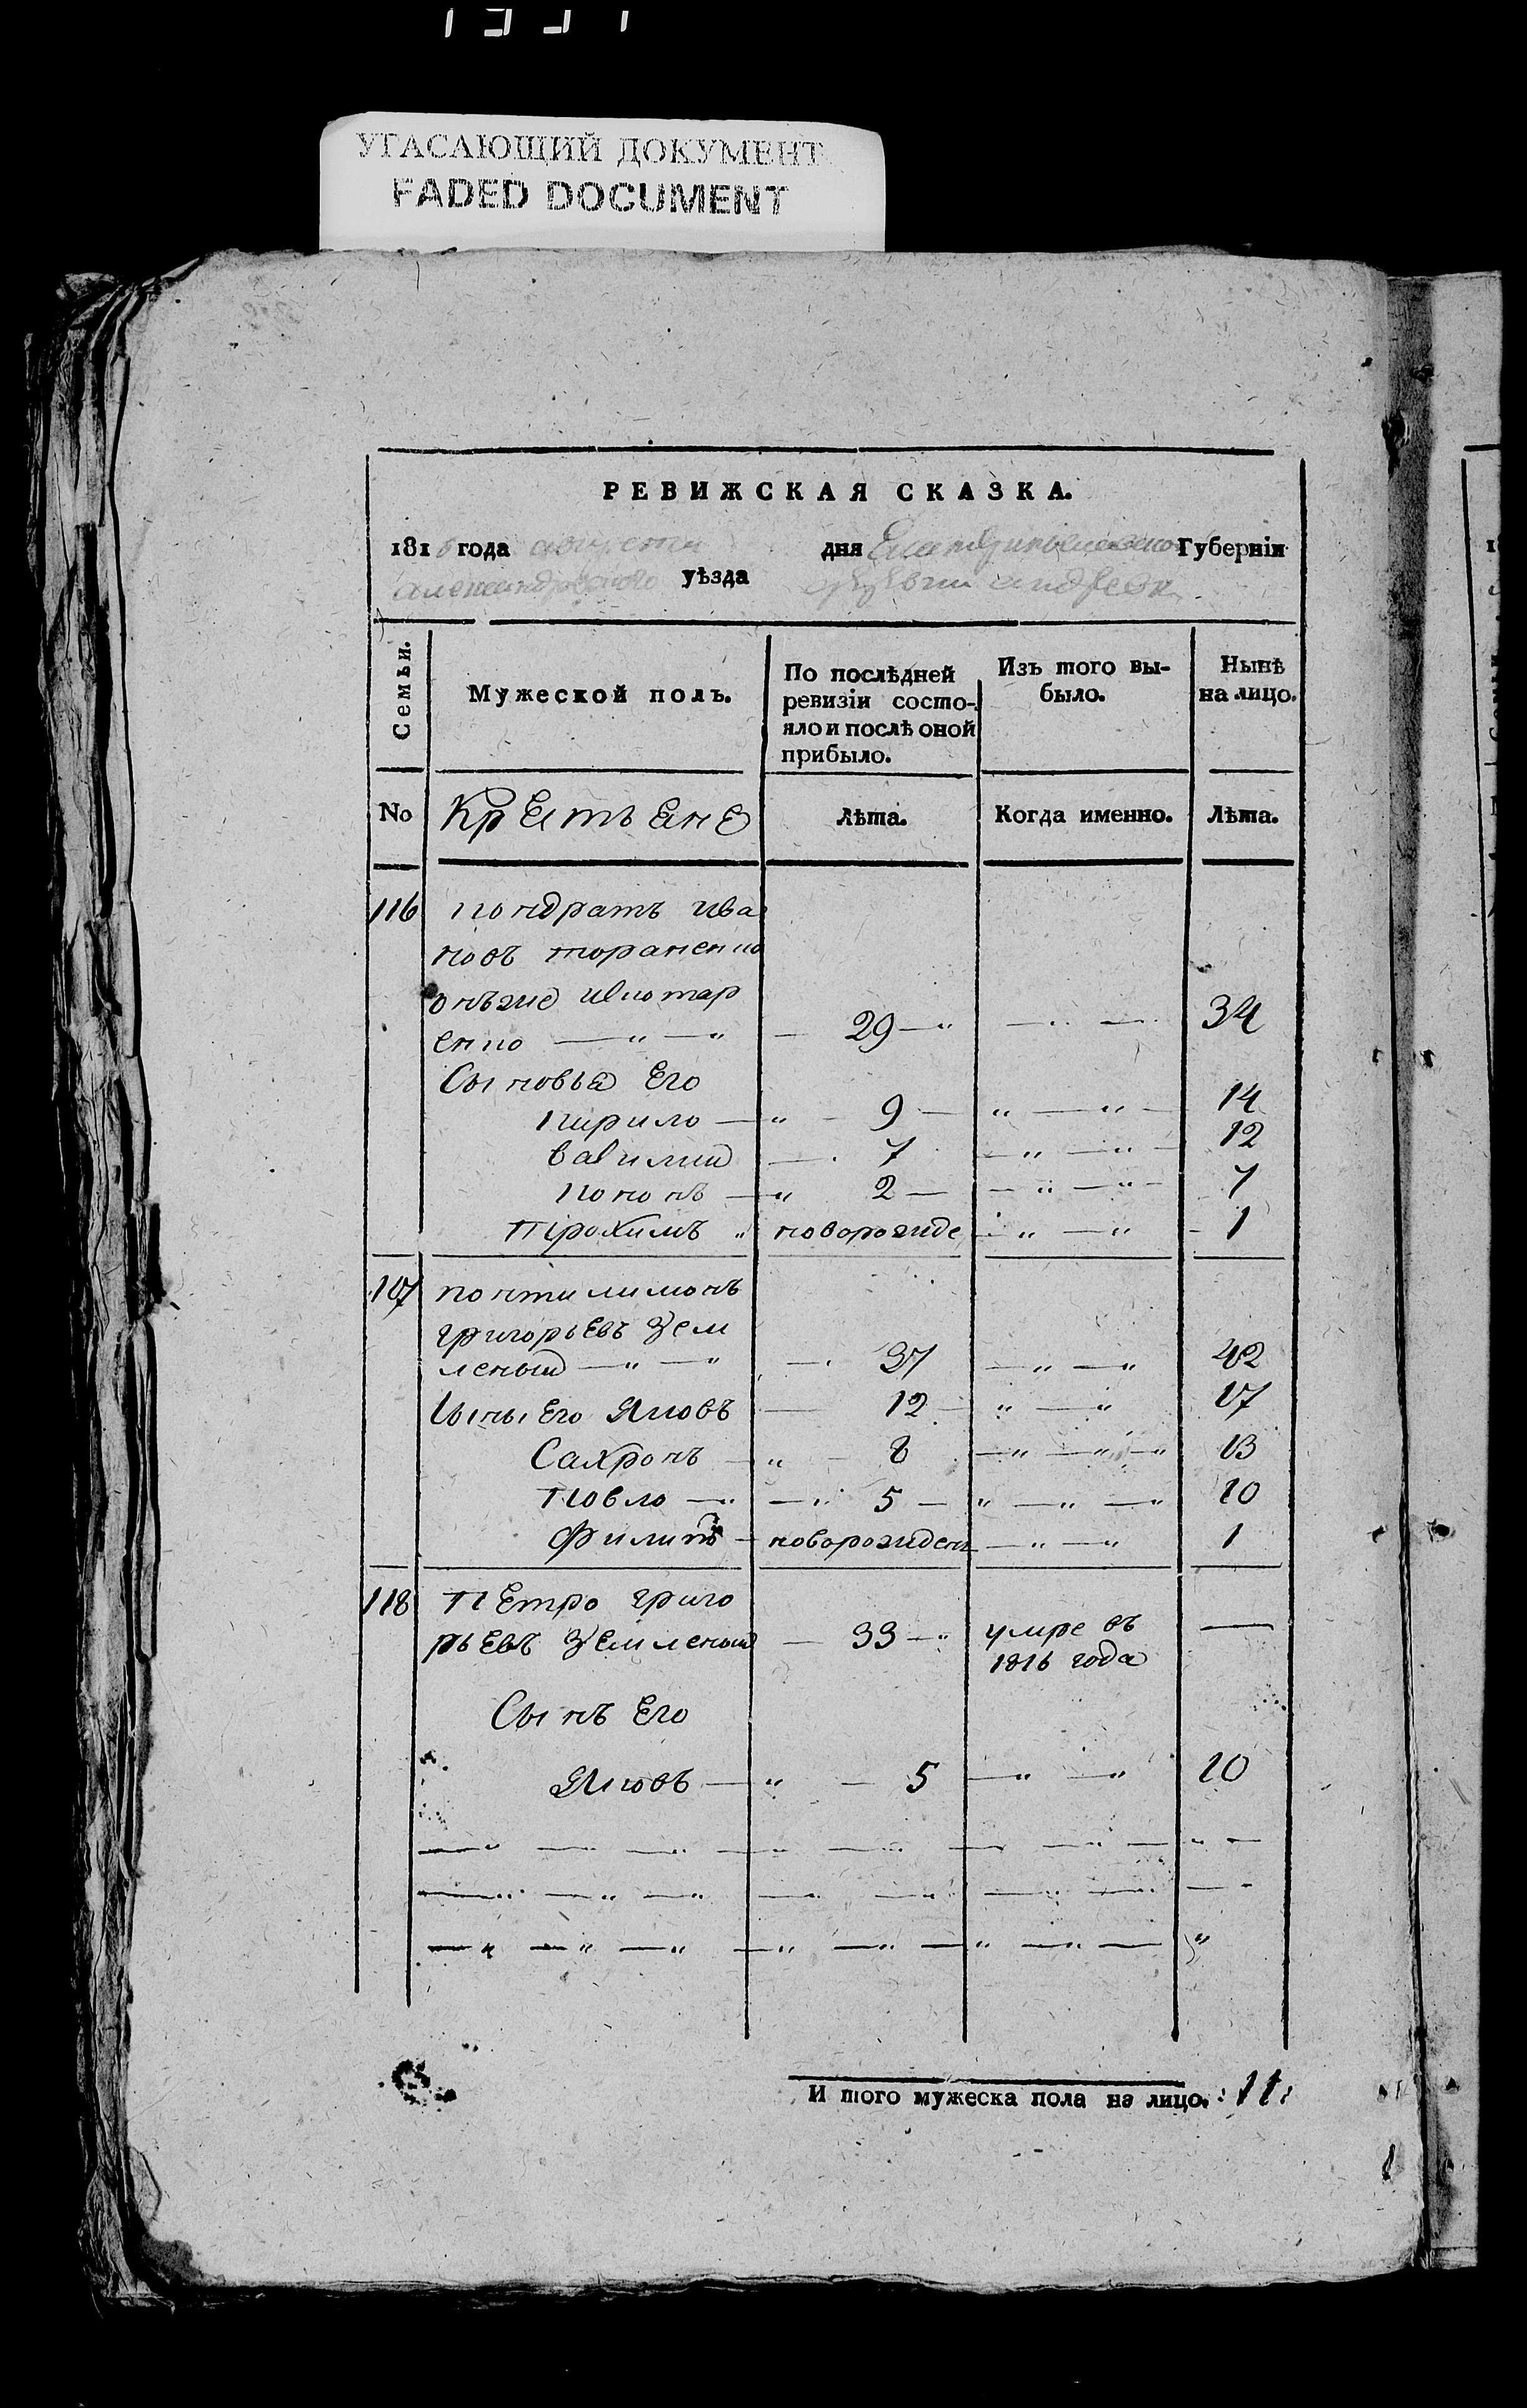 УГАСАЮЩИЙ ДОКУМЕНТ
FADED DOCUMENT
РЕВИЖСКАЯ СКАЗКА.
1816 года августа дня Екатеринославской Губерніи
александровского уѣзда
Семьи. Мужеской полъ. По послѣдней ревизіи состояло и послѣ оной прибыло. Изъ того выбыло. Нынѣ на лицо.
No Крестьяне Лѣта. Когда именно. Лѣта.
116 кондратъ Ива
новъ
онъже
енко — 29 — 34
Сыновья Его
кирило — 9 — 14
вавилий — 7 — 12
кононъ — 2 — 7
Трохимъ новорожде — 1
107 понтилимонъ
григорьевъ Зем
леный — 37 — 42
Сыны Его Яковъ — 12 — 17
Сахронъ — 8 — 13
Повло — 5 — 10
Филипъ — новорожденъ — 1
118 ПЕтро григо
рьевъ Земленый — 33 — умре въ —
1816 года
Сынъ Его
Яковъ — 5 — 10
И того мужеска пола на лицо. 11